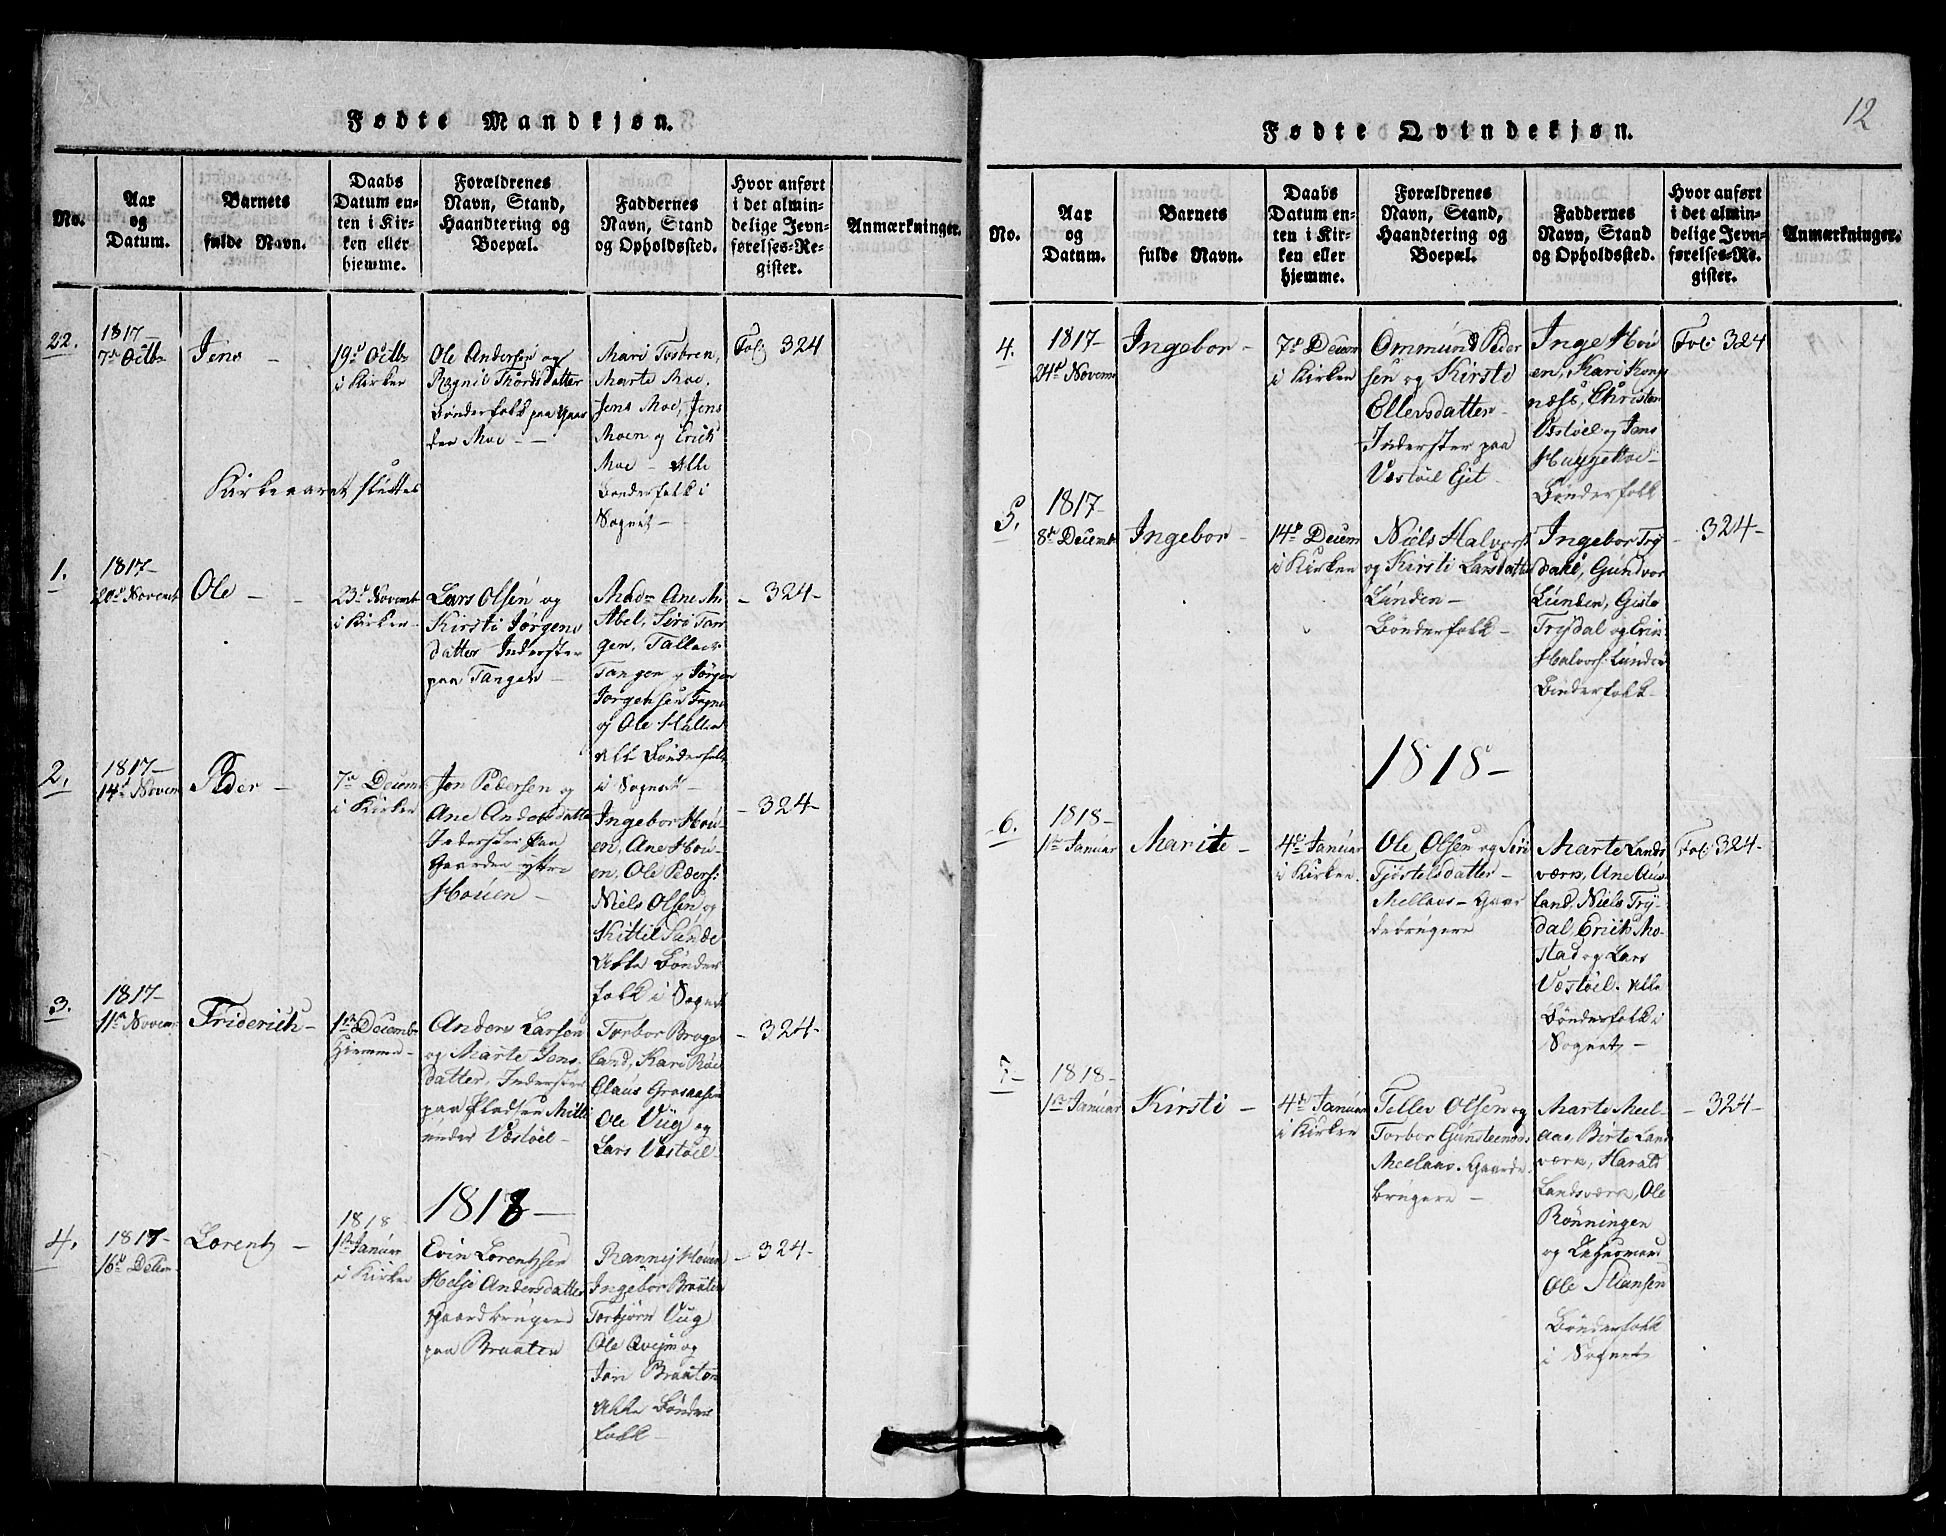 Fødte Mandkjøn.
No.
Aar
og
Datum.
Barnets
fulde Navn.
Daabs
Datum en-
ten i Kir-
ken eller
hjemme.
Forældrenes
Navn, Stand,
Haandtering og
Boepæl.
Faddernes
Navn, Stand
og Opholdssted.
Hvor anført
i det almin-
delige Jevn-
førelses-Re-
gister.
Anmærkninger.
22.
1817-
7de Octb
Jens -
19d Octb
i Kirken
Ole Andersen og
Ragnil Thords Datter
Bønderfolk paa Gaar
den Moe -
Mari
Marte Moe,
Jens Moe, Jens
Moen og Erich
Moe - Alle
Bønderfolk i
Sognet -
Fol 324
Kirkeaaret sluttes
1.
1817-
20d Novemb
Ole -
23d Novemb
i Kirken -
Lars Olsen og
Kirsti Jørgens
datter Inderster
paa Tangen -
Mad. Ane M.
Abel, Siri Tan-
gen, Tallack
Tangen og Jørgen
Jørgensen
og Ole Hallen
Alle Bønderfolk
i Sognet -
- 324 -
2.
1817-
14d Novem
Peder -
7de Decemb
i Kirken
Jon Pedersen og
Ane Andersdatter
Inderster paa
Gaarden yttre
Houen -
Ingebor Hou-
en, Ane Hou-
en, Ole Peders:
Niels Olsen og
Kittil Sande
Alle Bønder
folk i Sognet
- 324 -
3.
1817-
11te Novem
Friderich -
1ste Decembr
Hiemme -
Anders Larsen
og Marte Jens
datter, Inderster
paa Pladsen Mitti
under Væstøel -
Torbor Broge
land, Kari Røe
Claus Graaasen
Ole Vüg og
Lars Væstøel -
- 324 -
1818 -
4.
1817-
16d Decem
Lorentz -
1818
1ste Januar
i Kirken
Evin Lorentzsen
Helje Andersdatter
Gaardbrugere
paa Braaten
Rannej Houen
Ingebor Braaten
Torbjørn Vüg
Ole Qvejm og
Jon Braaten
Alle Bønder
folk -
- 324 -
12
Fødte Qvindekjøn.
No.
Aar
og
Datum.
Barnets
fulde Navn.
Daabs
Datum en-
ten i Kir-
ken eller
hjemme.
Forældrenes
Navn, Stand,
Haandtering og
Boepæl.
Faddernes
Navn, Stand
og Opholdssted.
Hvor anført
i det almin-
delige Jevn-
førelses-Re-
gister.
Anmærkninger.
4.
1817-
24d Novemb
Ingebor -
7de Decem
i Kirken
Ommund Peder
sen og Kirsti
Ellevsdatter -
Inderster paa
Væstøel Ejet -
Inge Hou
en, Kari Kongs
næss, Christen
Væstøel og Jens
Huggekoe -
Bønderfolk
Fol: 324
5.
1817-
8de Decemb
Ingebor -
14d Decem
i Kirken
Niels Halvors:
og Kirsti Larsdatter
Lunden -
Bønderfolk -
Ingebor Try
dahl, Gundvor
Lunden,
Trydal og Evin
Halvors: Lunden
Bønderfolk -
- 324 -
1818 -
6.
1818-
1ste Januar
Marite -
4de Januar
i Kirken.
Ole Olsen og Siri
Tjøstelsdatter -
Mellaas - Gaar
debrugere
Marte Lands
værk, Ane Aas
land, Niels Try-
dal, Erich Mo-
stad og Lars
Væstøel. Alle
Bønderfolk i
Sognet -
Fol: 324 -
7 -
1818-
1ste Januar
Kirsti -
4de Januar
i Kirken
Tellev Olsen og
Torbor Gunsteensd
Mellaas. Gaarde
brugere -
Marte Mel-
aas, Birte Land
værk, Harald
Landsværk, Ole
Rønningen
og Lehnsmand
Ole Hansen
Bønderfolk
i Sognet
- 324 -